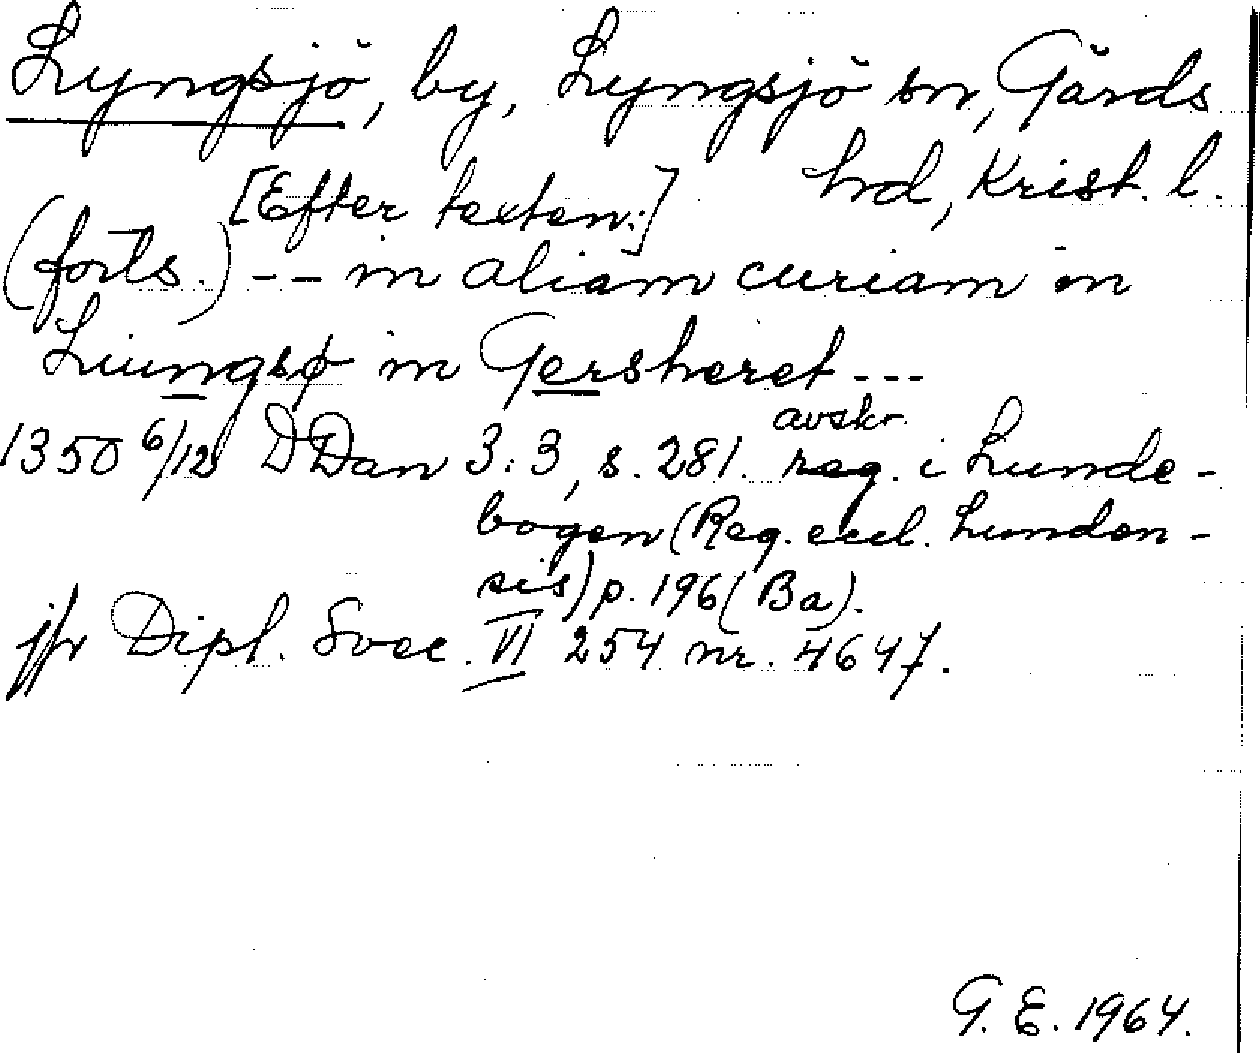 Lyngsjö, by, Lyngsjö sn, Gärds
hd, Krist. l.
[Efter texten:]
(forts.) -- in aliam curiam in
Liungsø in Gersheret ---
1350 6/12 DDan 3:3, s. 281. avskr. reg. i Lunde-
bogen (Reg. eccl. Lunden-
sis) p. 196 (Ba).
jfr Dipl. Svec. VI 254 nr. 4647.
G. E. 1964.